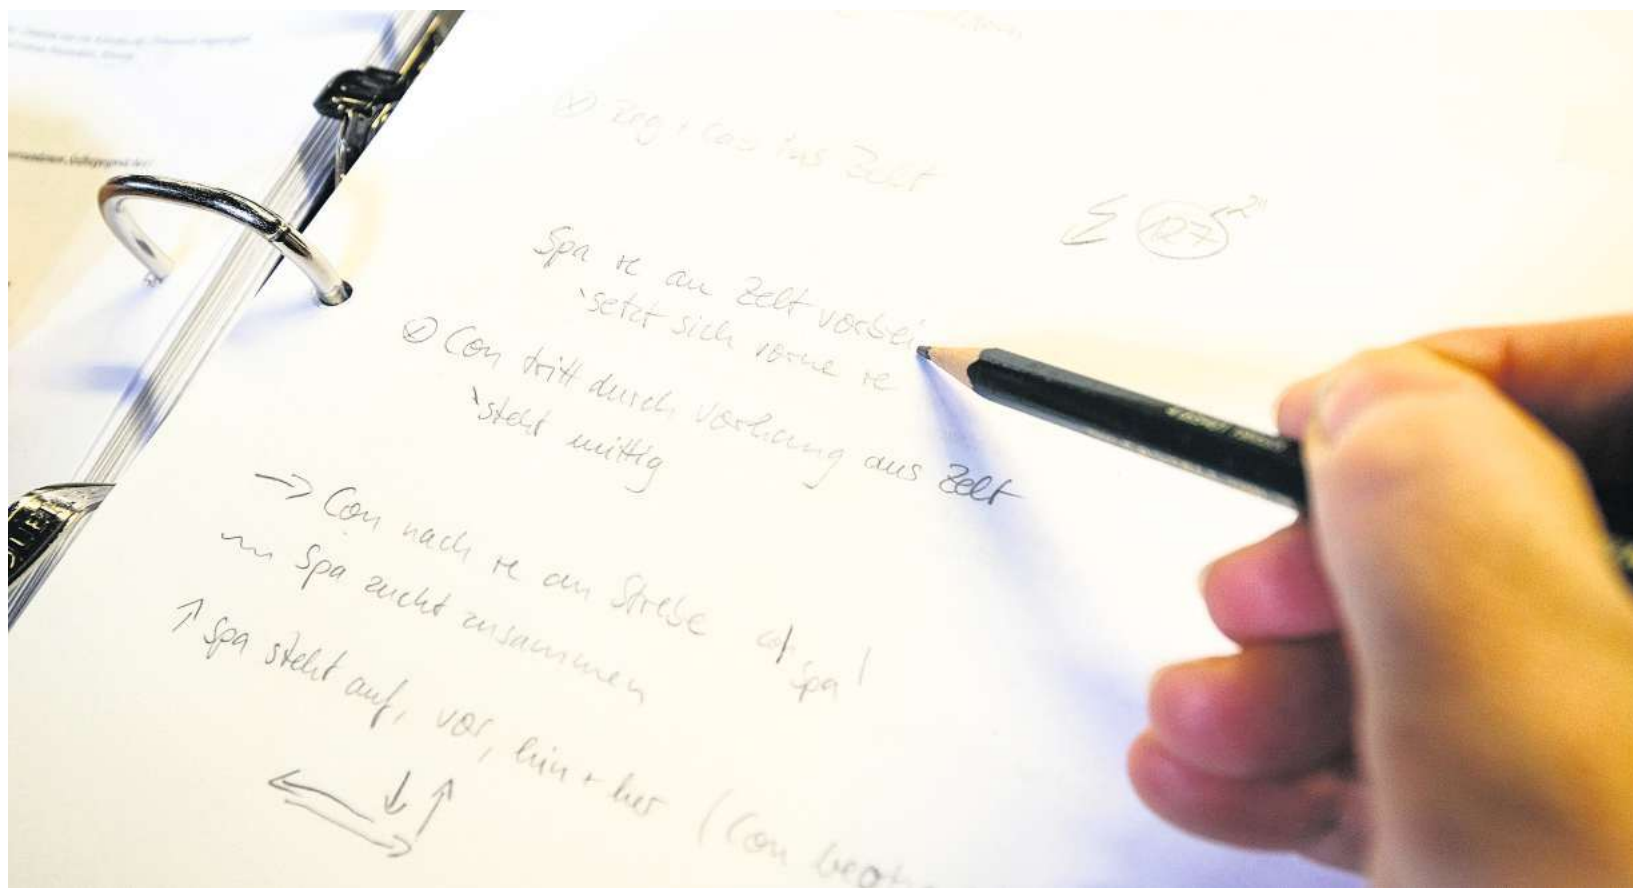 ins Zelt
127
Spa re an Zelt vorbei
setzt sich vorne re
Con tritt durch Vorhang aus Zelt
steht mittig
→ Con nach re an Strebe
Spa
Spa zuckt zusammen
↑ Spa steht auf, vor, hin + her (Con